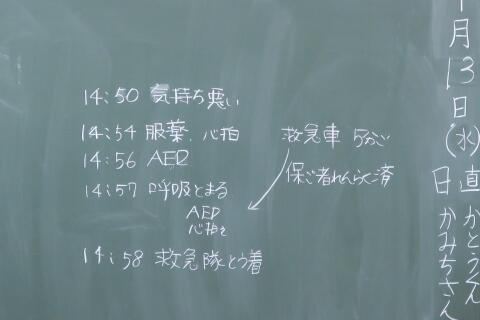 14:50 気持ち悪い
14:54 服薬、心拍
14:56 AED
14:57 呼吸とまる
AED
心拍を
14:58 救急隊とう着
救急車 5分ご
保ご者れんらく済
月13日(水)
日直
かとうくん
かみちさん